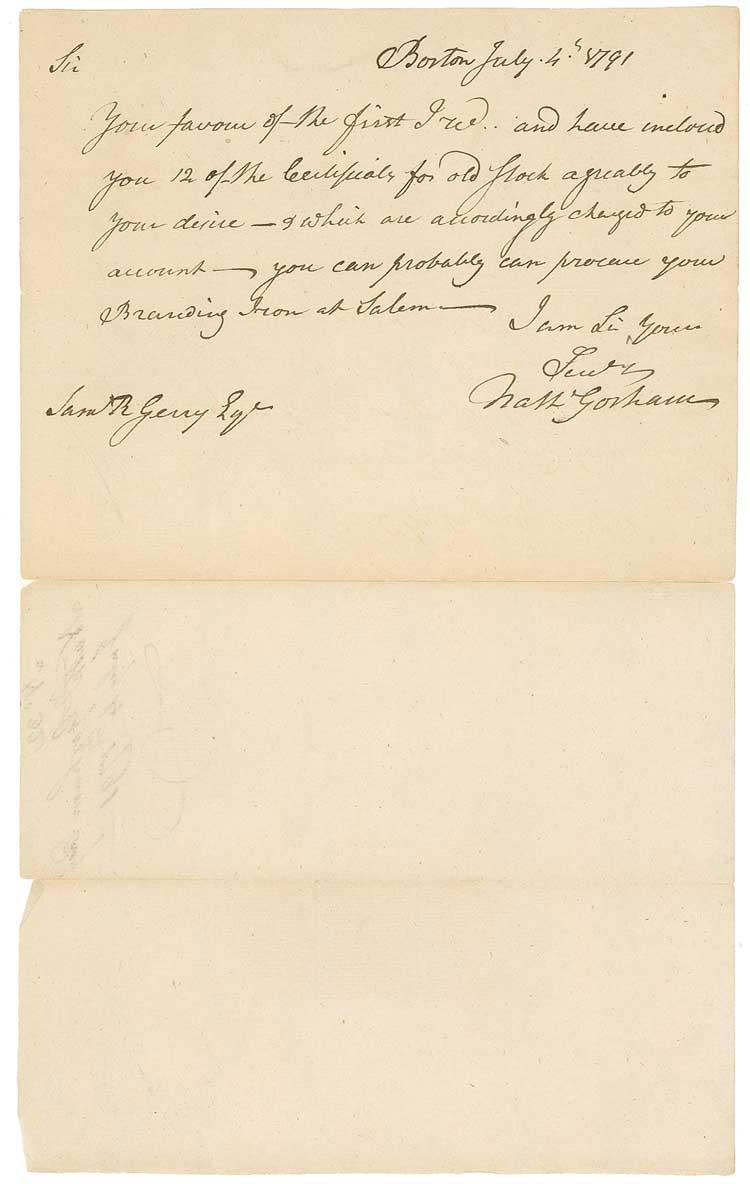 Boston July. 4.th 1791
Sir
Your favour of the first I recd.. and have inclosed
you 12 of the Certificats for old Stock agreably to
your desire — & which are accordingly charged to your
account — you can probably can procure your
Branding Iron at Salem —
I am Sir your
Servt
Nathl Gorham
Saml R Gerry Esqr